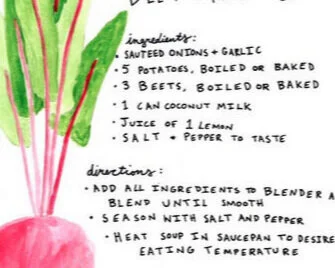 ingredients:
• SAUTEED ONIONS + GARLIC
• 5 POTATOES, BOILED OR BAKED
• 3 BEETS, BOILED OR BAKED
• 1 CAN COCONUT MILK
• JUICE OF 1 LEMON
• SALT + PEPPER TO TASTE
directions:
• ADD ALL INGREDIENTS TO BLENDER A
BLEND UNTIL SMOOTH
• SEASON WITH SALT AND PEPPER
• HEAT SOUP IN SAUCEPAN TO DESIRE
EATING TEMPERATURE